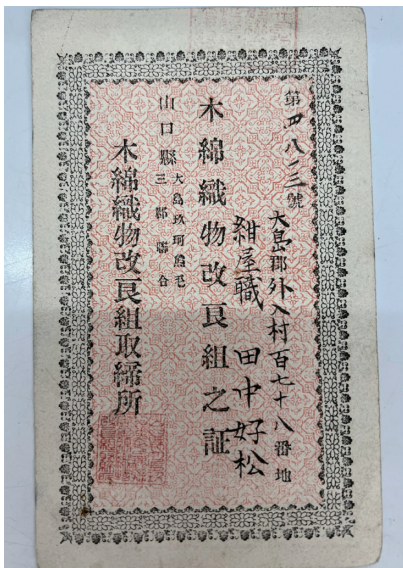 第四八一三號
大島郡外入村百七十八番地
紺屋職　田中好松
木綿織物改良組之証
山口縣
大島玖珂熊毛
三郡聯合
木綿織物改良組取締所